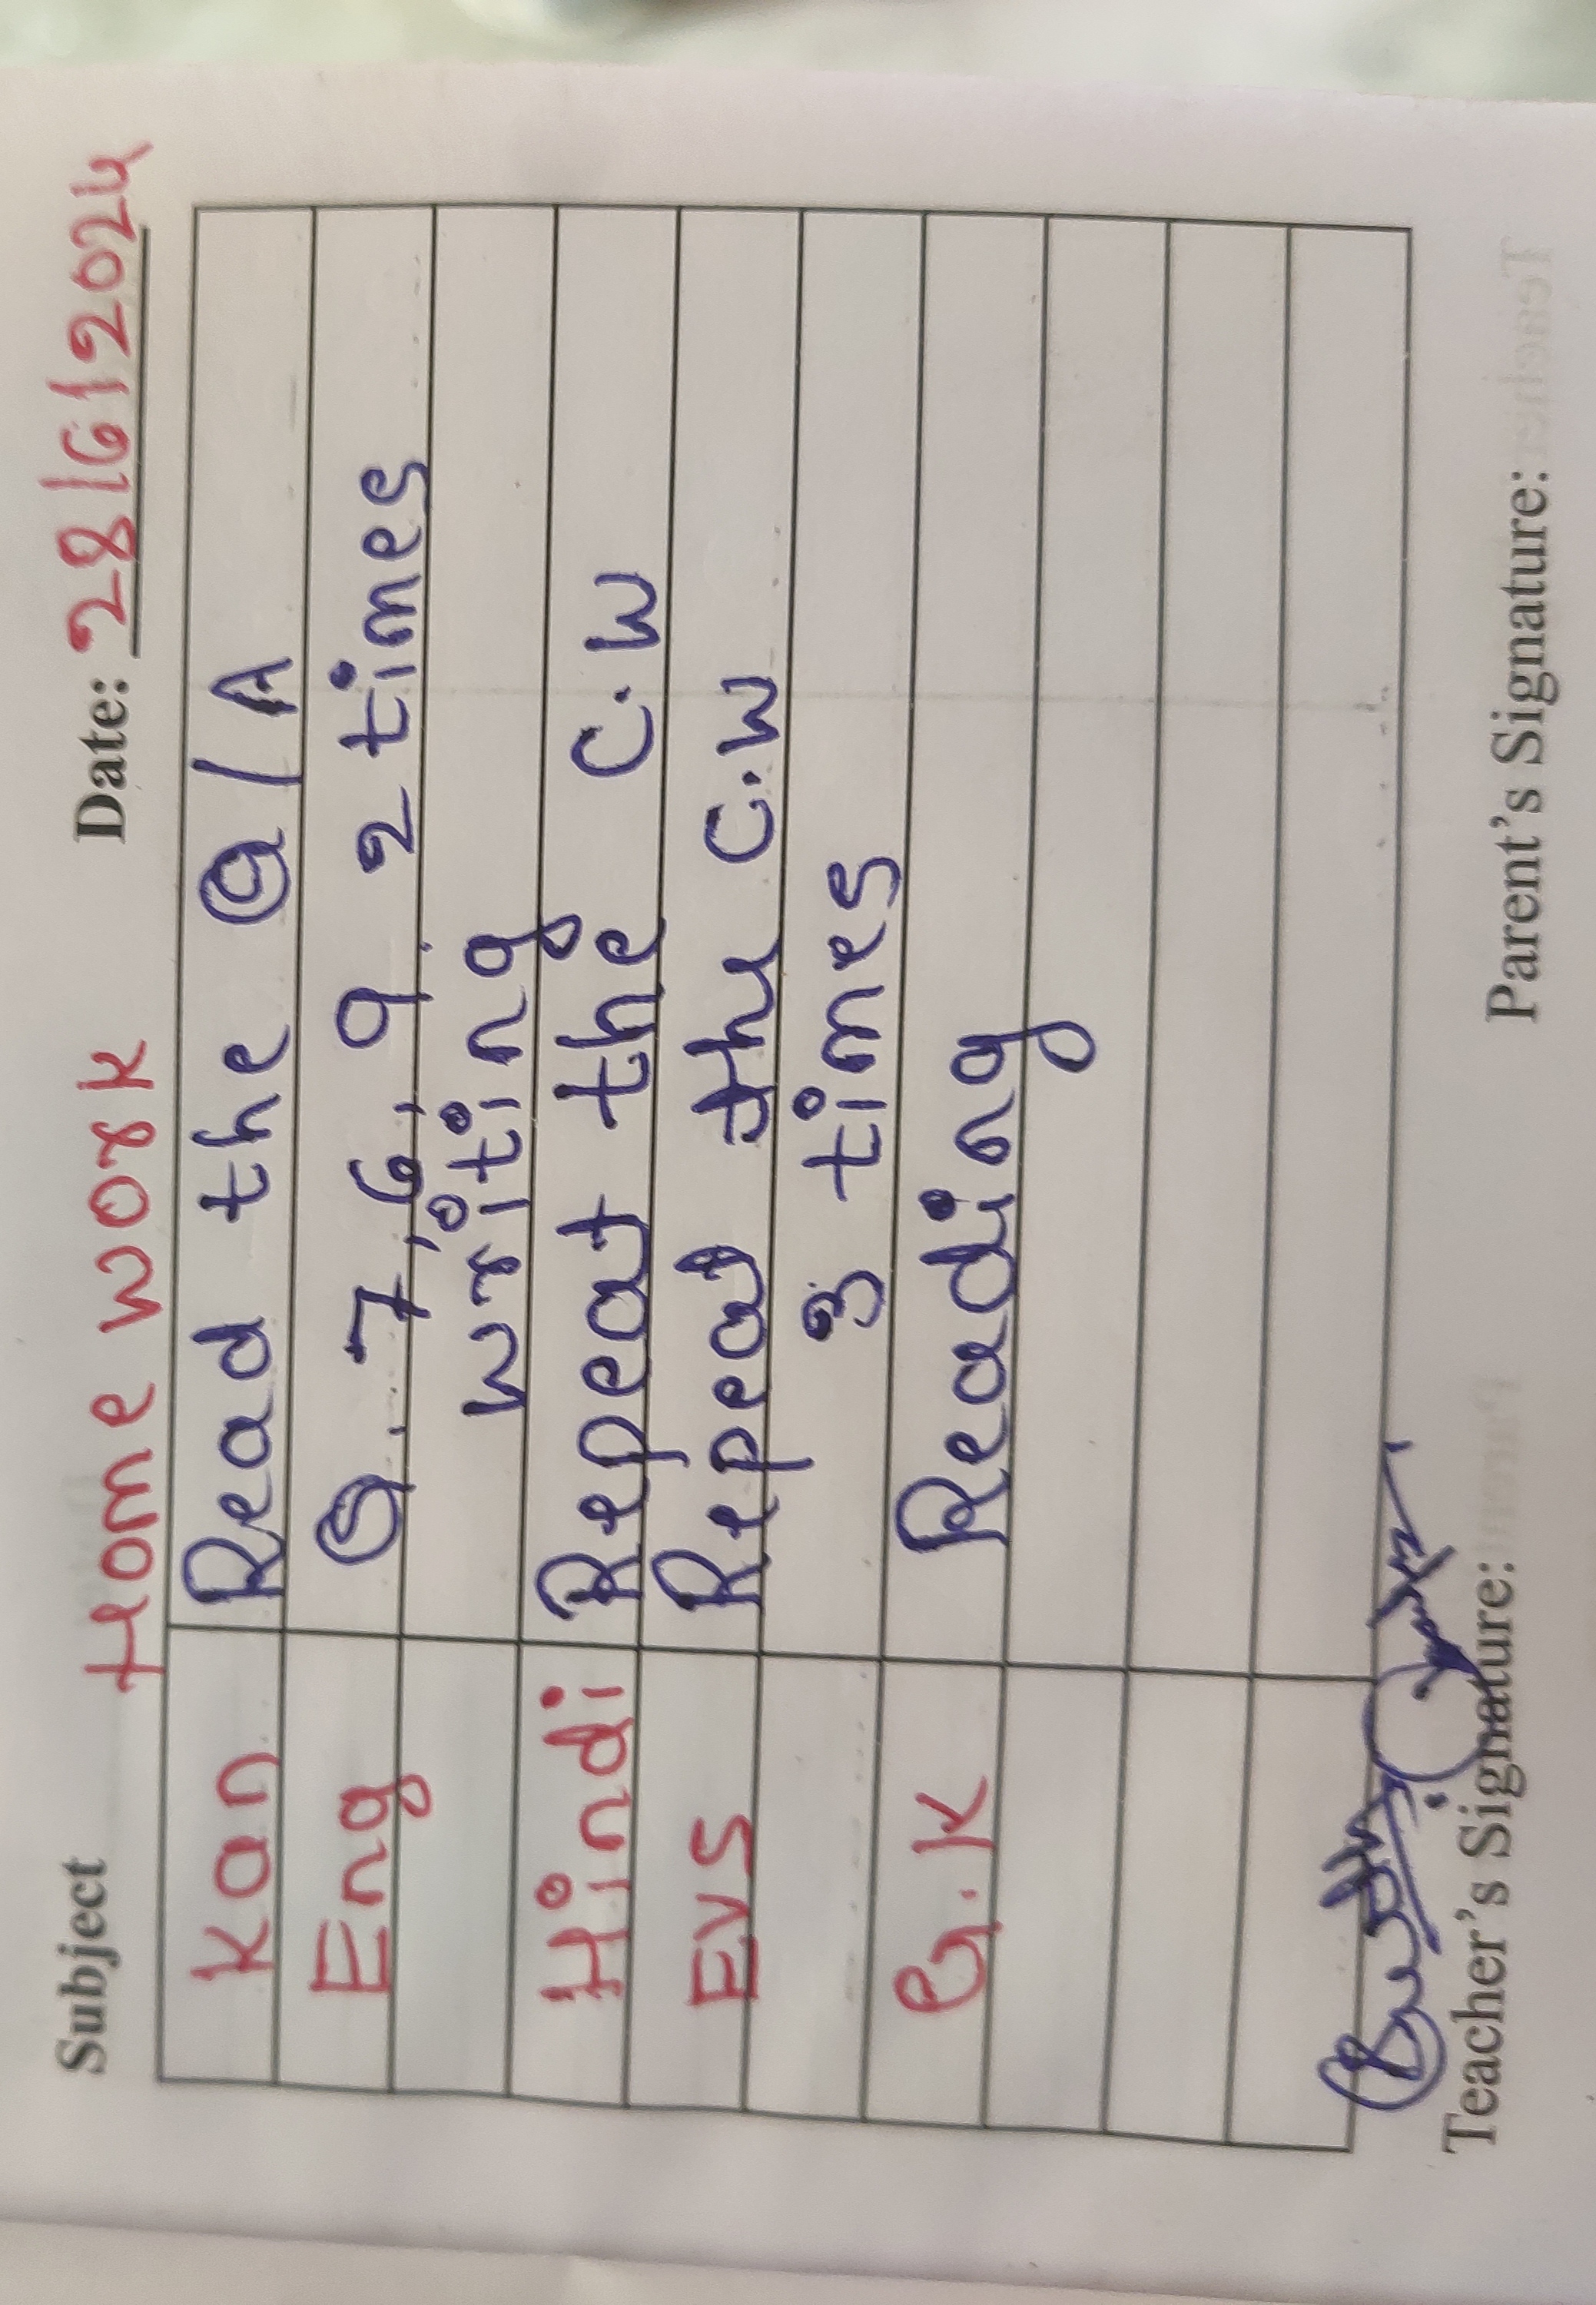 Subject Home work Date: 28/6/2024
Kan Read the Q/A
Eng Q. 7,6, 9 2 times
writing
Hindi Repeat the C.W
EVS Repeat the C.W
3 times
G.K Reading
Teacher's Signature: Parent's Signature: